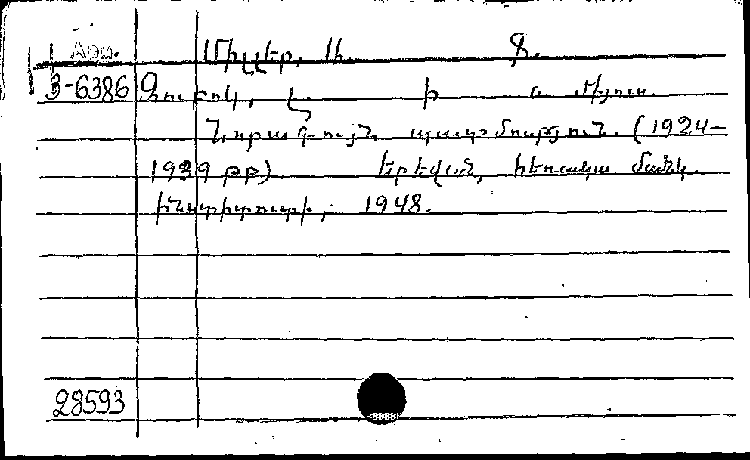 Արտ. Միլլեր, Ա. Ֆ.
3-6386 Զուբոկ, Լ. Ի. և մյուս.
Նորագույն պատմություն. (1924-
1939 թթ) Երևան, հեռակա մանկ.
ինստիտուտի, 1948.
28593